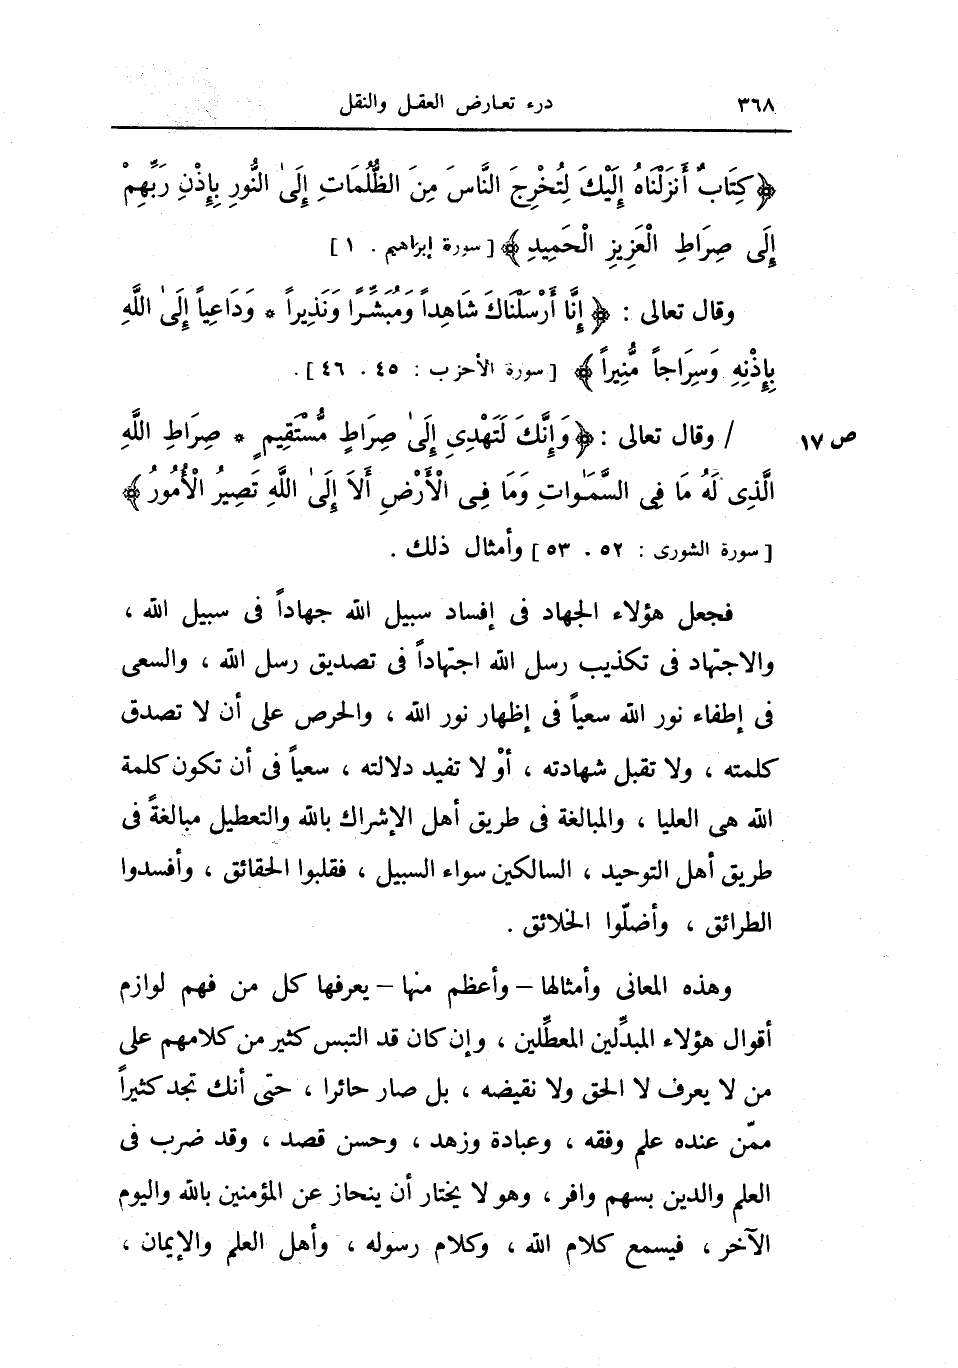 ٣٦٨ درء تعارض العقل والنقل
﴿كِتَابٌ أَنزَلْنَاهُ إِلَيْكَ لِتُخْرِجَ النَّاسَ مِنَ الظُّلُمَاتِ إِلَىٰ النُّورِ بِإِذْنِ رَبِّهِمْ
إِلَى صِرَاطِ الْعَزِيزِ الْحَمِيدِ﴾ [ سورة إبراهيم . ١ ]
وقال تعالى : ﴿ إِنَّا أَرْسَلْنَاكَ شَاهِداً وَمُبَشِّرًا وَنَذِيراً * وَدَاعِياً إِلَىٰ اللَّهِ
بِإِذْنِهِ وَسِرَاجاً مُّنِيراً ﴾ [ سورة الأحزب : ٤٥ ، ٤٦ ] .
/ وقال تعالى : ﴿وَإِنَّكَ لَتَهْدِى إِلَىٰ صِرَاطٍ مُّسْتَقِيمٍ * صِرَاطِ اللَّهِ ص ١٧
الَّذِى لَهُ مَا فِى السَّمَـٰواتِ وَمَا فِـى الْأَرْضِ أَلاَ إِلَى اللَّهِ تَصِيرُ الْأُمُورُ ﴾
[ سورة الشورى : ٥٢ ، ٥٣ ] وأمثال ذلك .
فجعل هؤلاء الجهاد فى إفساد سبيل الله جهاداً فى سبيل الله ،
والاجتهاد فى تكذيب رسل الله اجتهاداً فى تصديق رسل الله ، والسعى
فى إطفاء نور الله سعياً فى إظهار نور الله ، والحرص على أن لا تصدق
كلمته ، ولا تقبل شهادته ، أوْ لا تفيد دلالته ، سعياً فى أن تكون كلمة
الله هى العليا ، والمبالغة فى طريق أهل الإشراك بالله والتعطيل مبالغةً فى
طريق أهل التوحيد ، السالكين سواء السبيل ، فقلبوا الحقائق ، وأفسدوا
الطرائق ، وأضلّوا الخلائق .
وهذه المعانى وأمثالها – وأعظم منها – يعرفها كل من فهم لوازم
أقوال هؤلاء المبدِّلين المعطِّلين ، وإن كان قد التبس كثير من كلامهم على
من لا يعرف لا الحق ولا نقيضه ، بل صار حائرا ، حتى أنك تجد كثيراً
ممّن عنده علم وفقه ، وعبادة وزهد ، وحسن قصد ، وقد ضرب فى
العلم والدين بسهم وافر ، وهو لا يختار أن ينحاز عن المؤمنين بالله واليوم
الآخر ، فيسمع كلام الله ، وكلام رسوله ، وأهل العلم والإيمان ،